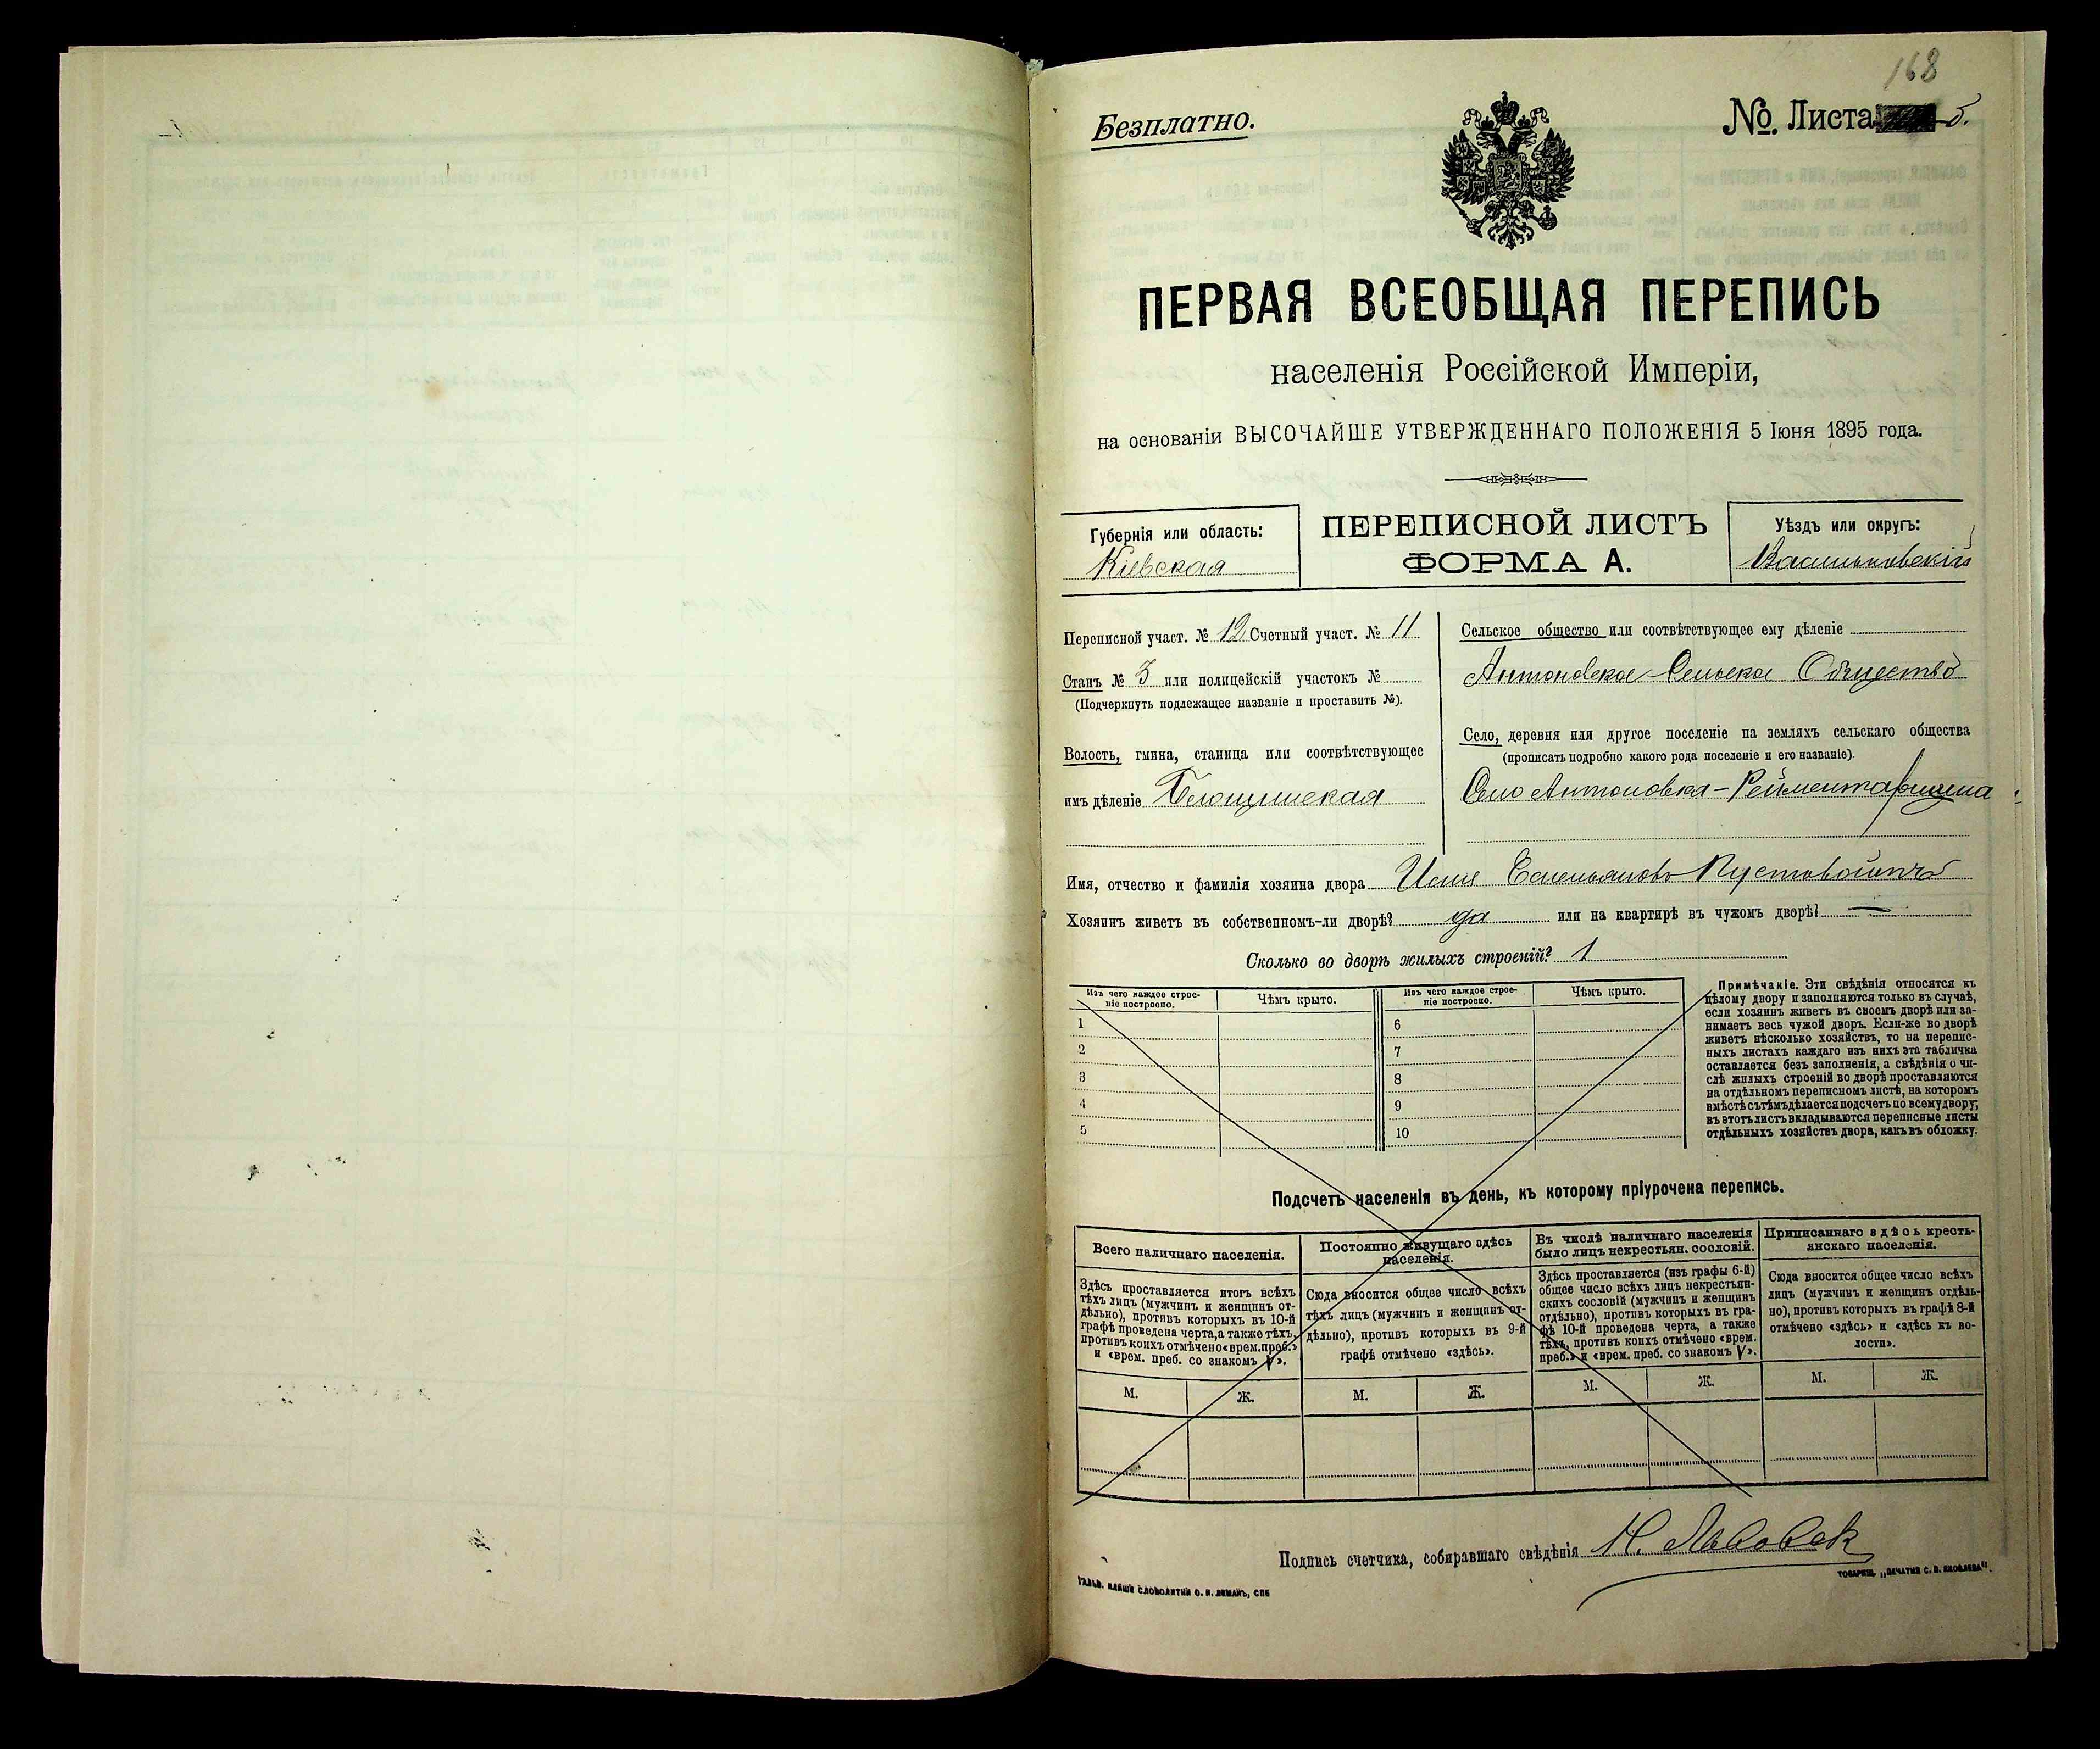 168
Безплатно.
№. Листа 5.
ПЕРВАЯ ВСЕОБЩАЯ ПЕРЕПИСЬ
населенія Россійской Имперіи,
на основаніи ВЫСОЧАЙШЕ УТВЕРЖДЕННАГО ПОЛОЖЕНІЯ 5 Іюня 1895 года.
Губернія или область:
Кіевская
ПЕРЕПИСНОЙ ЛИСТЪ
ФОРМА А.
Уѣздъ или округъ:
Васильковскій
Переписной участ. № 12 Счетный участ. № 11
Станъ № 3 или полицейскій участокъ №
(Подчеркнуть подлежащее названіе и проставить №).
Волость, гмина, станица или соотвѣтствующее
имъ дѣленіе
Сельское общество или соотвѣтствующее ему дѣленіе
Антоновское Сельское Общество
Село, деревня или другое поселеніе на земляхъ сельскаго общества
(прописать подробно какого рода поселеніе и его названіе).
Село Антоновка-Рейментарщина
Имя, отчество и фамилія хозяина двора Пустовойтъ
Хозяинъ живетъ въ собственномъ-ли дворѣ? да или на квартирѣ въ чужомъ дворѣ? —
Сколько во дворѣ жилыхъ строеній? 1
Изъ чего каждое строе-
ніе построено.
Чѣмъ крыто.
Изъ чего каждое строе-
ніе построено.
Чѣмъ крыто.
1
2
3
4
5
6
7
8
9
10
Примѣчаніе. Эти свѣдѣнія относятся къ
цѣлому двору и заполняются только въ случаѣ,
если хозяинъ живетъ въ своемъ дворѣ или за-
нимаетъ весь чужой дворъ. Если-же во дворѣ
живетъ нѣсколько хозяйствъ, то на перепис-
ныхъ листахъ каждаго изъ нихъ эта табличка
оставляется безъ заполненія, а свѣдѣнія о чи-
слѣ жилыхъ строеній во дворѣ проставляются
на отдѣльномъ переписномъ листѣ, на которомъ
вмѣстѣ съ тѣмъ дѣлается подсчетъ по всему двору;
въ этотъ листъ вкладываются переписные листы
отдѣльныхъ хозяйствъ двора, какъ въ обложку.
Подсчетъ населенія въ день, къ которому пріурочена перепись.
Всего наличнаго населенія.
Здѣсь проставляется итогъ всѣхъ
тѣхъ лицъ (мужчинъ и женщинъ от-
дѣльно), противъ которыхъ въ 10-й
графѣ проведена черта, а также тѣхъ,
противъ коихъ отмѣчено «врем. преб.»
и «врем. преб. со знакомъ V».
М.
Ж.
Постоянно живущаго здѣсь
населенія.
Сюда вносится общее число всѣхъ
тѣхъ лицъ (мужчинъ и женщинъ от-
дѣльно), противъ которыхъ въ 9-й
графѣ отмѣчено «здѣсь».
М.
Ж.
Въ числѣ наличнаго населенія
было лицъ некрестьян. сословій.
Здѣсь проставляется (изъ графы 6-й)
общее число всѣхъ лицъ некрестьян-
скихъ сословій (мужчинъ и женщинъ
отдѣльно), противъ которыхъ въ гра-
фѣ 10-й проведена черта, а также
тѣхъ, противъ коихъ отмѣчено «врем.
преб.» и «врем. преб. со знакомъ V».
М.
Ж.
Приписаннаго здѣсь кресть-
янскаго населенія.
Сюда вносится общее число всѣхъ
лицъ (мужчинъ и женщинъ отдѣль-
но), противъ которыхъ въ графѣ 8-й
отмѣчено «здѣсь» и «здѣсь къ во-
лости».
М.
Ж.
Подпись счетчика, собиравшаго свѣдѣнія
ГАЛЬВ. КЛИШЕ СЛОВОЛИТНИ О. И. ЛЕМАНЪ, СПБ
ТОВАРИЩ. „ПЕЧАТНЯ С. П. ЯКОВЛЕВА".